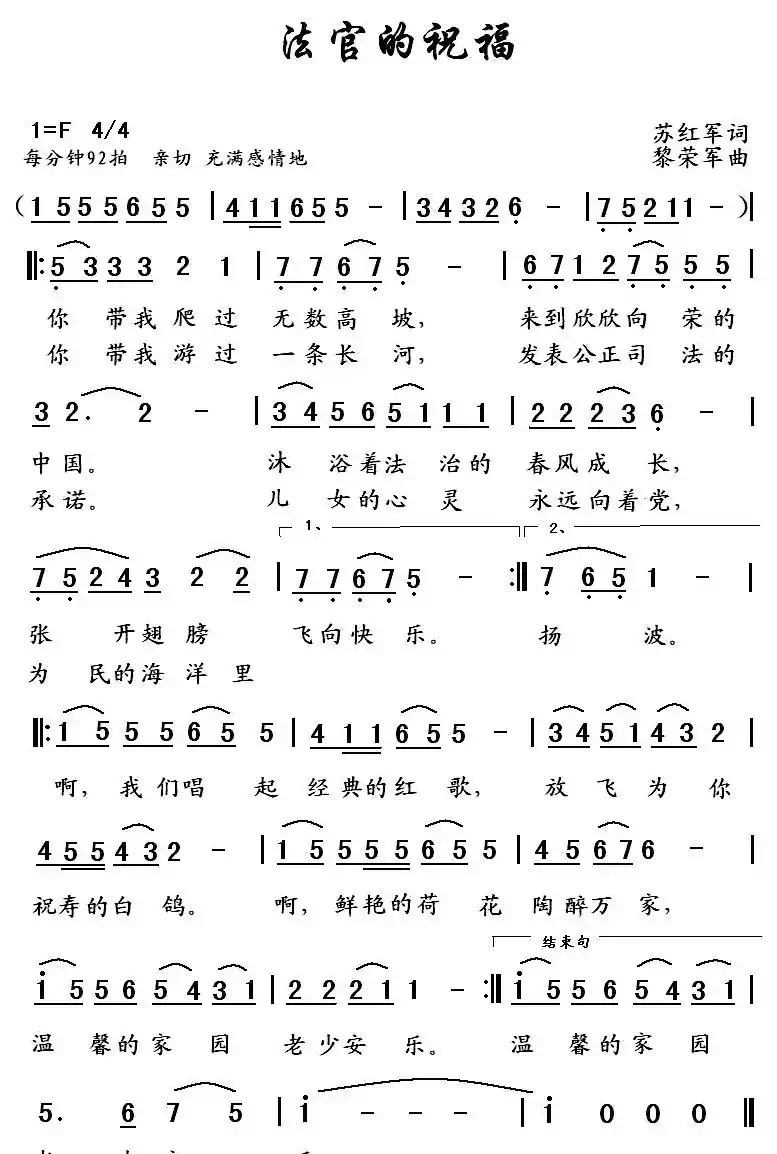 法官的祝福
1=F 4/4
苏红军词
每分钟92拍 亲切 充满感情地
黎荣军曲
(1 5 5 5 6 5 5 5 | 4 1 1 6 5 5 5 - | 3 4 3 2 6 - | 7 5 2 1 1 - )|
‖: 5 3 3 3 2 1 | 7 7 6 7 5 - | 6 7 1 2 7 5 5 5 |
你 带我 爬 过 无数高 坡, 来到欣欣向 荣的
你 带我 游 过 一条长 河, 发表公正司 法的
3 2. 2 - | 3 4 5 6 5 1 1 1 1 | 2 2 2 3 6 - |
中国。 沐 浴着法 治的 春风成 长,
承诺。 儿 女的心 灵 永远向着党,
1、 2、
7 5 2 4 3 2 2 | 7 7 6 7 5 - :‖ 7 6 5 1 - |
张 开翅 膀 飞向快 乐。 扬 波。
为 民的海 洋里
‖: 1 5 5 5 6 5 5 | 4 1 1 6 5 5 - | 3 4 5 1 4 3 2 |
啊, 我们唱 起 经典的红 歌, 放 飞 为 你
4 5 5 4 3 2 - | 1 5 5 5 5 6 5 5 | 4 5 6 7 6 - |
祝寿的白 鸽。 啊, 鲜艳的荷 花 陶醉万 家,
结束句
i 5 5 6 5 4 3 1 | 2 2 2 1 1 - :‖ i 5 5 6 5 4 3 1 |
温 馨的家 园 老少安 乐。 温 馨的家 园
5. 6 7 5 | i - - - | i 0 0 0 ‖